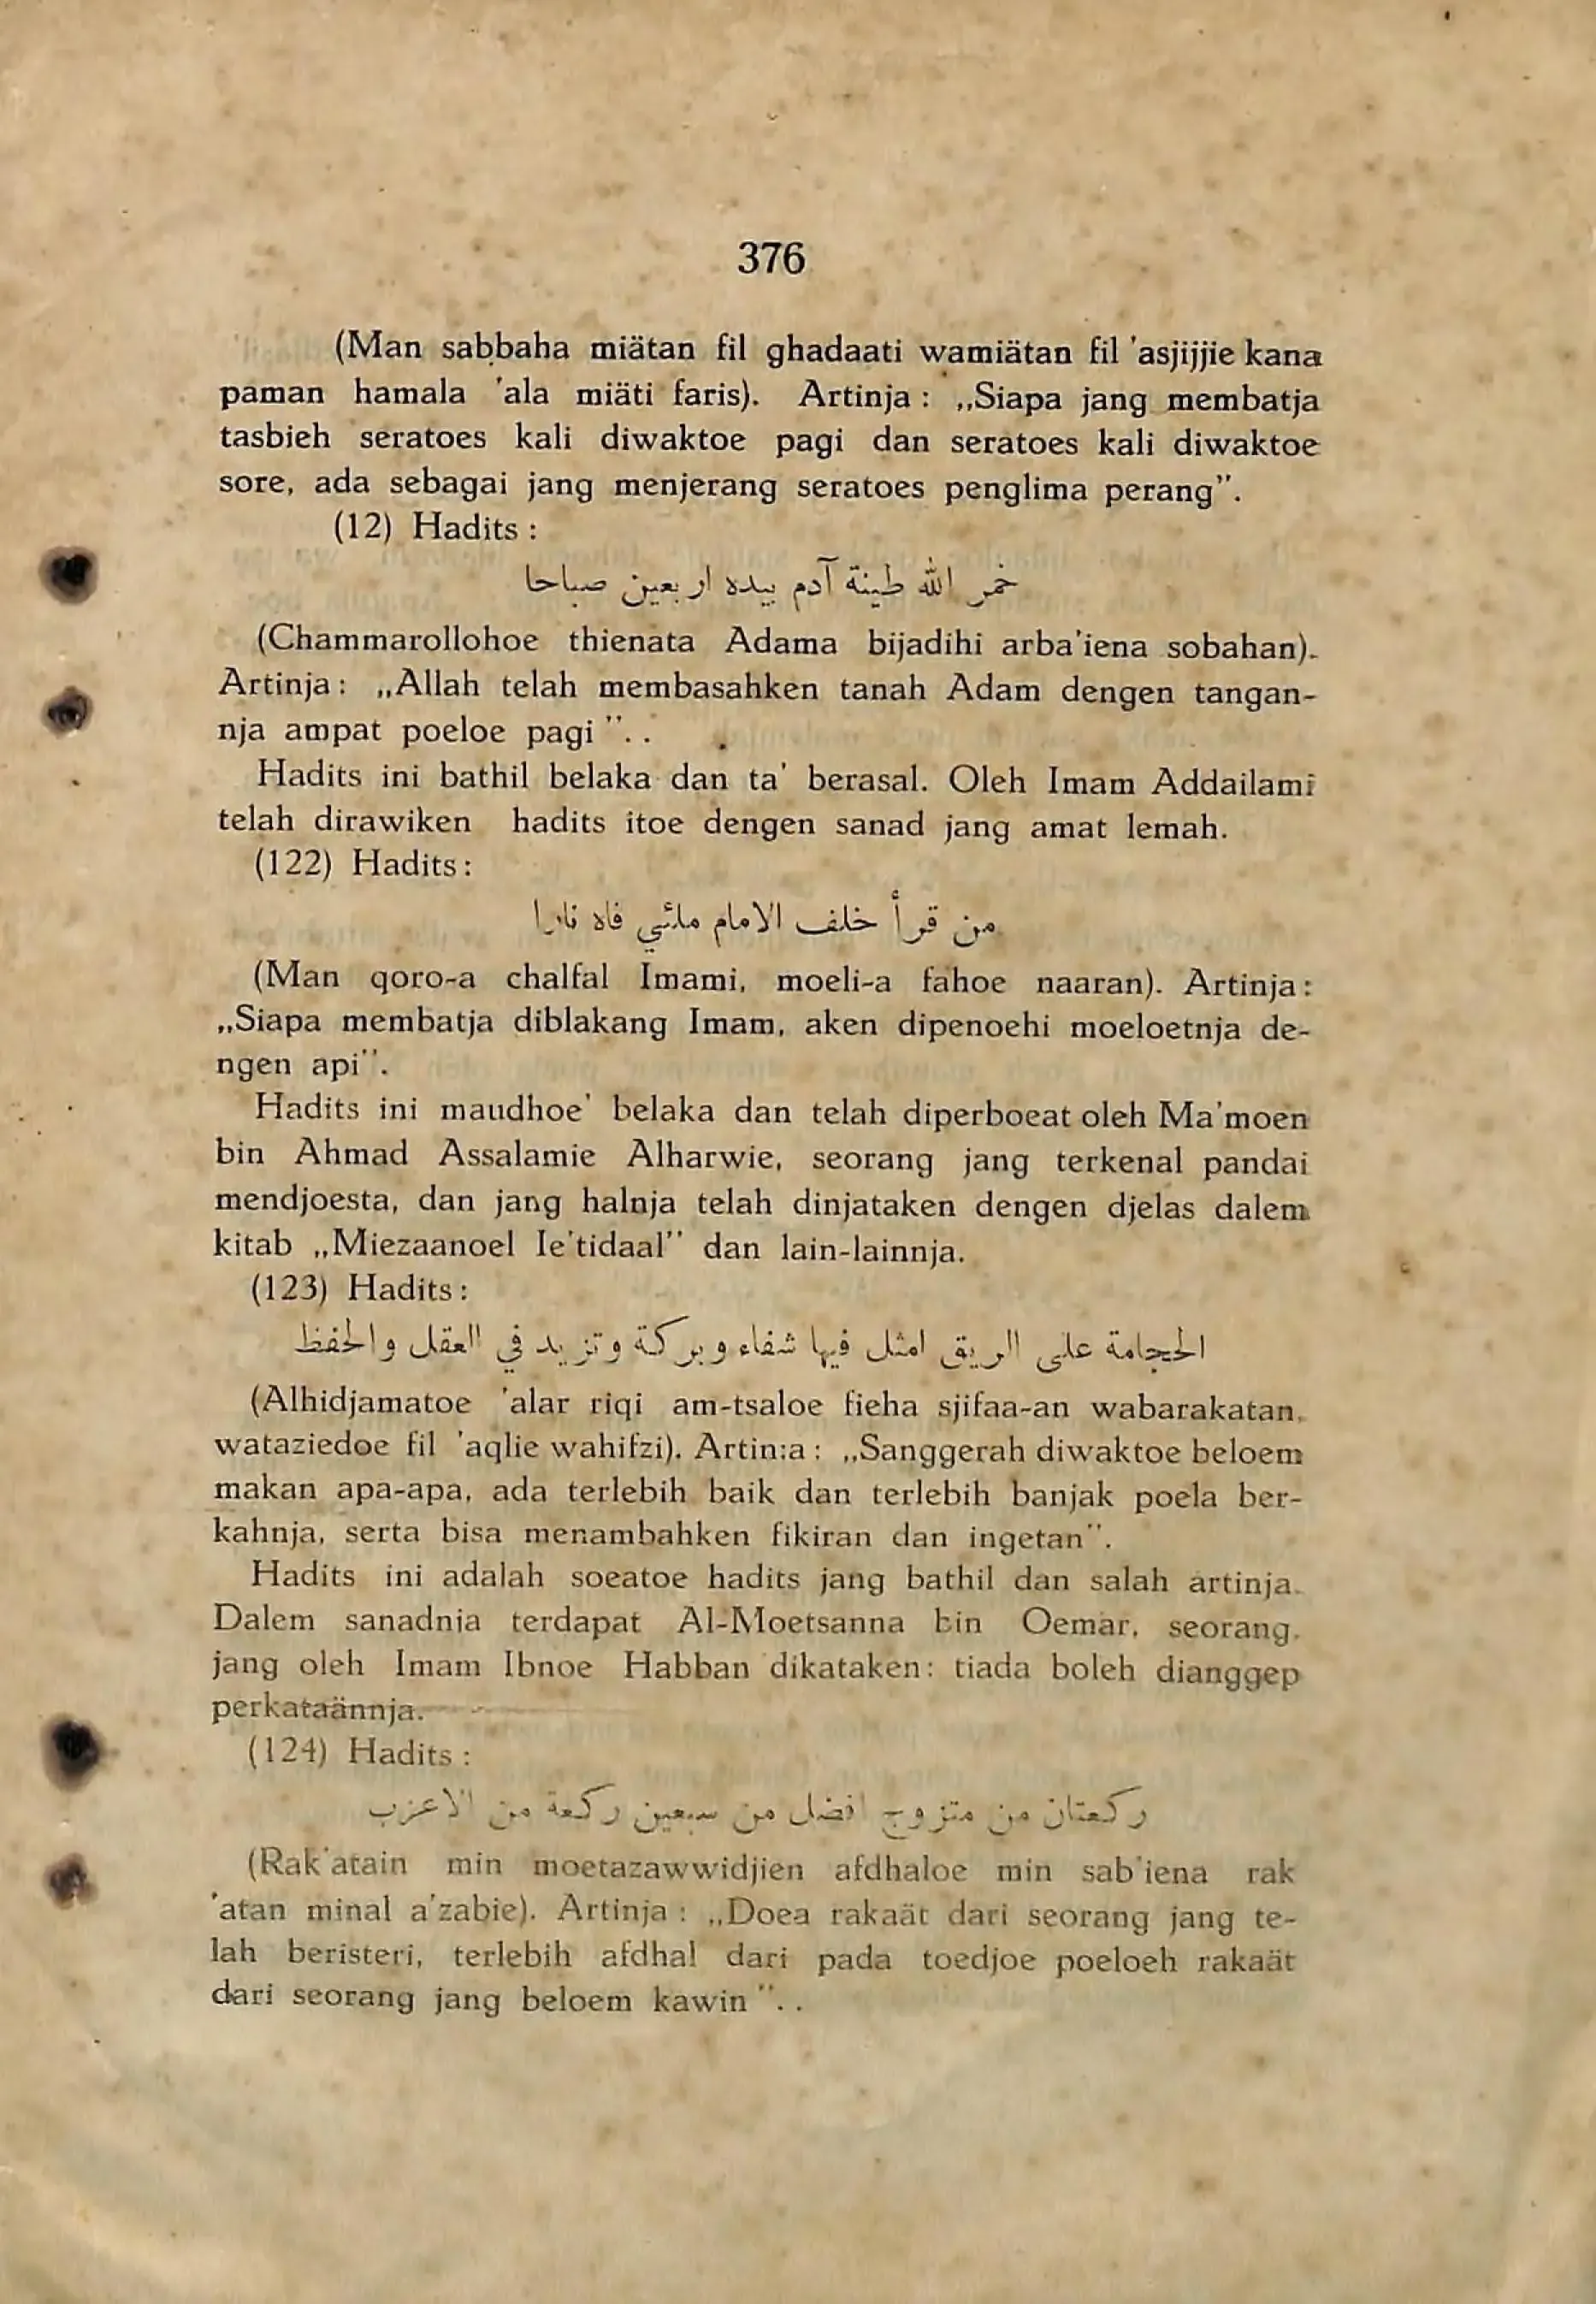 376
(Man sabbaha miätan fil ghadaati wamiätan fil 'asjijjie kana
paman hamala 'ala miäti faris). Artinja : „Siapa jang membatja
tasbieh seratoes kali diwaktoe pagi dan seratoes kali diwaktoe
sore, ada sebagai jang menjerang seratoes penglima perang".
(12) Hadits :
خمر الله طينة آدم بيده اربعين صباحا
(Chammarollohoe thienata Adama bijadihi arba'iena sobahan).
Artinja : „Allah telah membasahken tanah Adam dengen tangan-
nja ampat poeloe pagi "..
Hadits ini bathil belaka dan ta' berasal. Oleh Imam Addailami
telah dirawiken hadits itoe dengen sanad jang amat lemah.
(122) Hadits :
من قرأ خلف الامام ملئي فاه نارا
(Man qoro-a chalfal Imami, moeli-a fahoe naaran). Artinja :
„Siapa membatja diblakang Imam, aken dipenoehi moeloetnja de-
ngen api".
Hadits ini maudhoe' belaka dan telah diperboeat oleh Ma'moen
bin Ahmad Assalamie Alharwie, seorang jang terkenal pandai
mendjoesta, dan jang halnja telah dinjataken dengen djelas dalem
kitab „Miezaanoel Ie'tidaal" dan lain-lainnja.
(123) Hadits :
الحجامة على الريق امثل فيها شفاء وبركة وتزيد في العقل والحفظ
(Alhidjamatoe 'alar riqi am-tsaloe fieha sjifaa-an wabarakatan,
wataziedoe fil 'aqlie wahifzi). Artin:a : „Sanggerah diwaktoe beloem
makan apa-apa, ada terlebih baik dan terlebih banjak poela ber-
kahnja, serta bisa menambahken fikiran dan ingetan".
Hadits ini adalah soeatoe hadits jang bathil dan salah artinja.
Dalem sanadnia terdapat Al-Moetsanna bin Oemar, seorang
jang oleh Imam Ibnoe Habban dikataken: tiada boleh dianggep
perkataännja.
(124) Hadits :
ركعتان من متزوج افضل من سبعين ركعة من الاعزب
(Rak'atain min moetazawwidjien afdhaloe min sab'iena rak
'atan minal a'zabie). Artinja : „Doea rakaät dari seorang jang te-
lah beristeri, terlebih afdhal dari pada toedjoe poeloeh rakaät
dari seorang jang beloem kawin "..